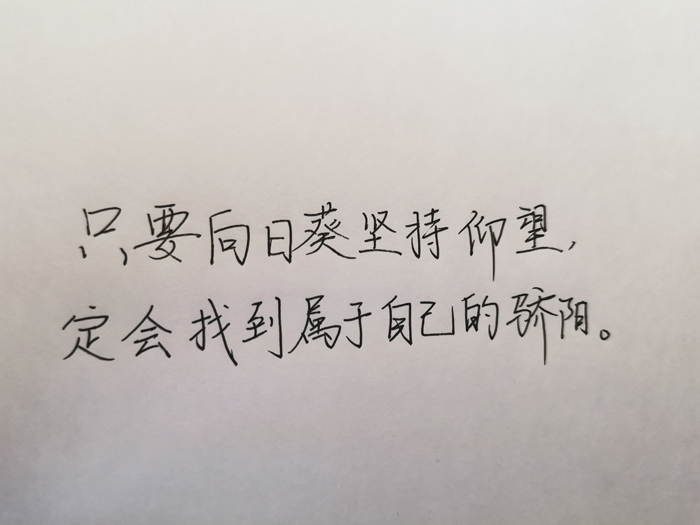 只要向日葵坚持仰望，
定会找到属于自己的骄阳。